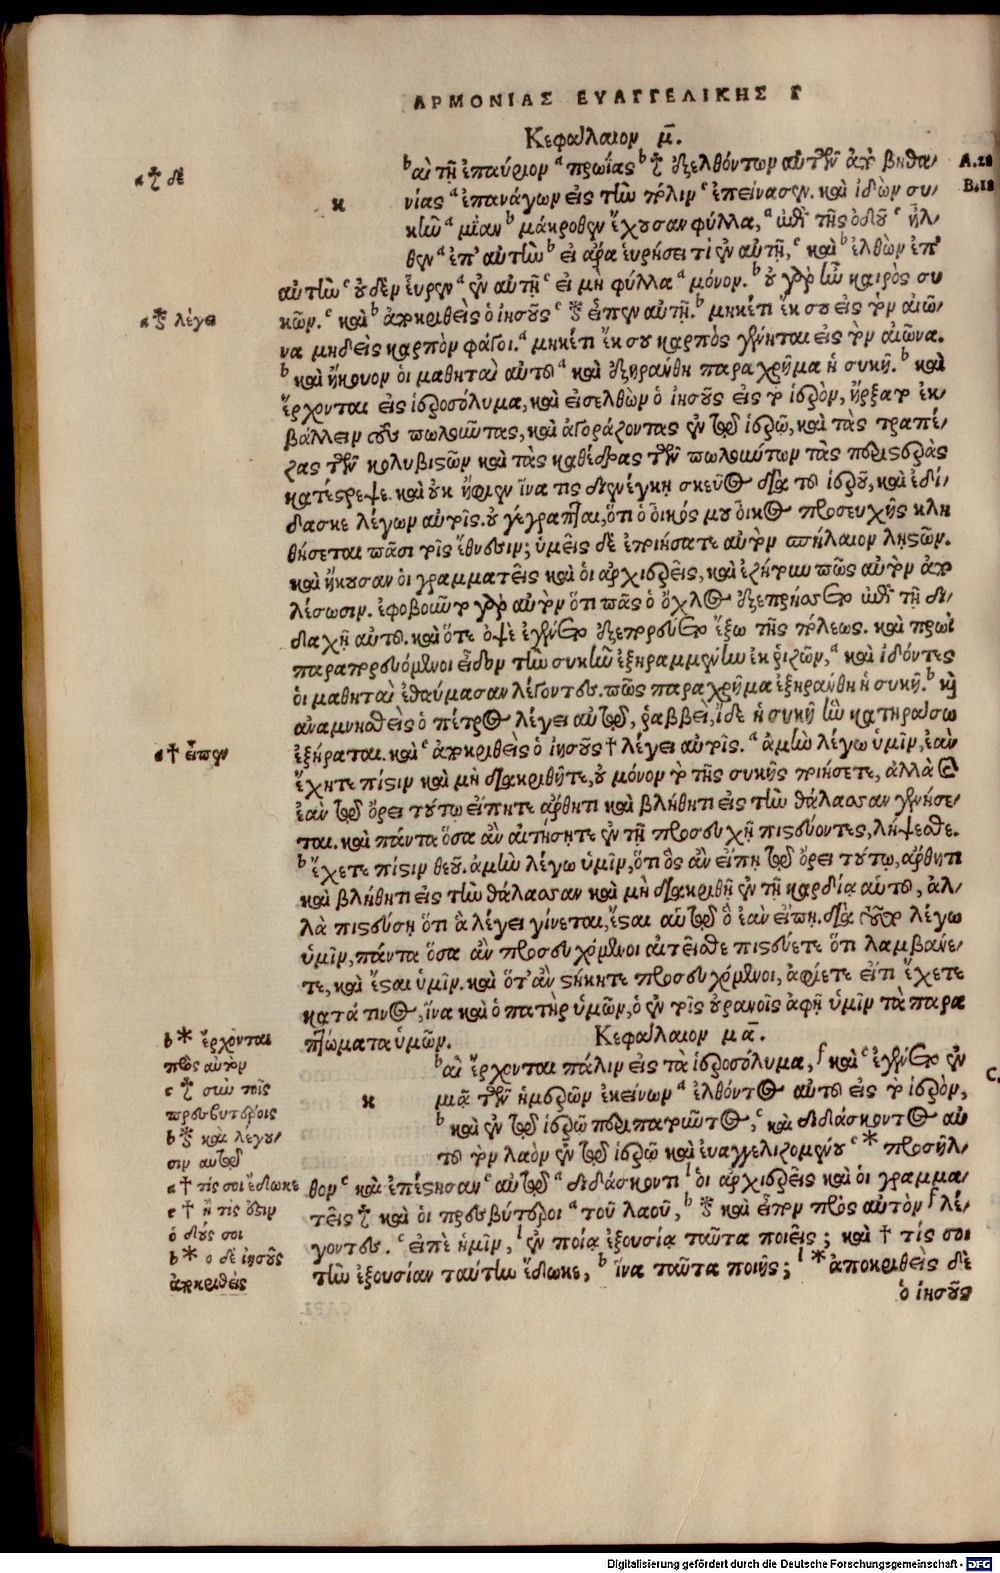 ΑΡΜΟΝΙΑΣ ΕΥΑΓΓΕΛΙΚΗΣ Γ
Κεφάλαιον μ̄.
a ☿ δὲ
κ
ᵇαὶ τῇ ἐπαύριον ᵃ πρωΐας ᵇ ☿ ἐξελθόντων αὐτῶν ἀπὸ βηθα/
A.21
νίας ᵃ ἐπανάγων εἰς τὴν πόλιν ᶜ ἐπείνασεν. καὶ ἰδὼν συ/
B.11
κῆν ᵃ μίαν ᵇ μάκροθεν ἔχουσαν φύλλα, ᵃ ἐπὶ τῆς ὁδοῦ ᶜ ἦλ/
θεν ᵃ ἐπ' αὐτὴν ᵇ εἰ ἄρα εὑρήσει τὶ ἐν αὐτῇ, ᶜ καὶ ᵇ ἐλθὼν ἐπ'
αὐτὴν ᶜ οὐδὲν εὗρεν ᵃ ἐν αὐτῇ ᶜ εἰ μὴ φύλλα ᵃ μόνον. ᵇ οὐ γὰρ ἦν καιρὸς σύ
a ⚹ λέγει
κων. ᶜ καὶ ᵇ ἀποκριθεὶς ὁ ἰησοῦς ᶜ ⚹ εἶπεν αὐτῇ. ᵇ μηκέτι ἔκ σου εἰς τὸν αἰῶ/
να μηδεὶς καρπὸν φάγοι. ᵃ μηκέτι ἔκ σου καρπὸς γένηται εἰς τὸν αἰῶνα.
ᵇ καὶ ἤκουον οἱ μαθηταὶ αὐτοῦ ᵃ καὶ ἐξηράνθη παραχρῆμα ἡ συκῆ. ᵇ καὶ
ἔρχονται εἰς ἱεροσόλυμα, καὶ εἰσελθὼν ὁ ἰησοῦς εἰς τὸ ἱερὸν, ἤρξατο ἐκ/
βάλλειν τοὺς πωλοῦντας, καὶ ἀγοράζοντας ἐν τῷ ἱερῷ, καὶ τὰς τραπέ/
ζας τῶν κολυβιστῶν καὶ τὰς καθέδρας τῶν πωλούντων τὰς περιστερὰς
κατέστρεψε. καὶ οὐκ ἤφιεν ἵνα τις διενέγκῃ σκεῦος διὰ τοῦ ἱεροῦ, καὶ ἐδί/
δασκε λέγων αὐτοῖς. οὐ γέγραπται, ὅτι ὁ οἶκός μου οἶκος προσευχῆς κλη
θήσεται πᾶσι τοῖς ἔθνεσιν; ὑμεῖς δὲ ἐποιήσατε αὐτὸν σπήλαιον λῃστῶν.
καὶ ἤκουσαν οἱ γραμματεῖς καὶ οἱ ἀρχιερεῖς, καὶ ἐζήτουν πῶς αὐτὸν ἀπο
λέσωσιν. ἐφοβοῦντο γὰρ αὐτὸν ὅτι πᾶς ὁ ὄχλος ἐξεπλήσσετο ἐπὶ τῇ δι/
δαχῇ αὐτοῦ. καὶ ὅτε ὀψὲ ἐγένετο ἐξεπορεύετο ἔξω τῆς πόλεως. καὶ πρωὶ
παραπορευόμενοι εἶδον τὴν συκῆν ἐξηραμμένην ἐκ ῥιζῶν, ᵃ καὶ ἰδόντες
οἱ μαθηταὶ ἐθαύμασαν λέγοντες. πῶς παραχρῆμα ἐξηράνθη ἡ συκῆ. ᵇ καὶ
ἀναμνησθεὶς ὁ πέτρος λέγει αὐτῷ, ῥαββεὶ, ἴδε ἡ συκῆ ἣν κατηράσω
a † εἶπεν
ἐξήραται. καὶ ᶜ ἀποκριθεὶς ὁ ἰησοῦς † λέγει αὐτοῖς. ᵃ ἀμὴν λέγω ὑμῖν, ἐὰν
ἔχητε πίστιν καὶ μὴ διακριθῆτε, οὐ μόνον τὸ τῆς συκῆς ποιήσετε, ἀλλὰ καὶ
ἐὰν τῷ ὄρει τούτῳ εἴπητε ἄρθητι καὶ βλήθητι εἰς τὴν θάλασσαν γενήσε/
ται. καὶ πάντα ὅσα ἂν αἰτήσητε ἐν τῇ προσευχῇ πιστεύοντες, λήψεσθε.
ᵇ ἔχετε πίστιν θεοῦ. ἀμὴν λέγω ὑμῖν, ὅτι ὃς ἂν εἴπῃ τῷ ὄρει τούτῳ, ἄρθητι
καὶ βλήθητι εἰς τὴν θάλασσαν καὶ μὴ διακριθῇ ἐν τῇ καρδίᾳ αὑτοῦ, ἀλ/
λὰ πιστεύσῃ ὅτι ἃ λέγει γίνεται, ἔσται αὐτῷ ὃ ἐὰν εἴπῃ. διὰ τοῦτο λέγω
ὑμῖν, πάντα ὅσα ἂν προσευχόμενοι αἰτεῖσθε πιστεύετε ὅτι λαμβάνε/
τε, καὶ ἔσται ὑμῖν. καὶ ὅτ' ἂν στήκητε προσευχόμενοι, ἀφίετε εἴτι ἔχετε
κατά τινος, ἵνα καὶ ὁ πατὴρ ὑμῶν, ὁ ἐν τοῖς οὐρανοῖς ἀφῇ ὑμῖν τὰ παρα
πτώματα ὑμῶν. Κεφάλαιον μᾱ.
b * ἔρχονται
πρὸς αὐτὸν
c ☿ σὺν τοῖς
πρεσβυτέροις
b ⚹ καὶ λέγου/
σιν αὐτῷ
a † τίς σοι ἔδωκε
c † ἢ τίς ἐστιν
ὁ δούς σοι
b * ὁ δὲ ἰησοῦς
ἀποκριθεὶς
κ
ᵇαὶ ἔρχονται πάλιν εἰς τὰ ἱεροσόλυμα, ᶠ καὶ ᶜ ἐγένετο ἐν
C.
μιᾷ τῶν ἡμερῶν ἐκείνων ᵃ ἐλθόντος αὐτοῦ εἰς τὸ ἱερὸν,
ᵇ καὶ ἐν τῷ ἱερῷ περιπατοῦντος, ᶜ καὶ διδάσκοντος αὐ
τοῦ τὸν λαὸν ἐν τῷ ἱερῷ καὶ εὐαγγελιζομένου ᶜ * προσῆλ/
θον ᶜ καὶ ἐπέστησαν ᶜ αὐτῷ ᵃ διδάσκοντι ˡ οἱ ἀρχιερεῖς καὶ οἱ γραμμα/
τεῖς ☿ καὶ οἱ πρεσβύτεροι ᵃ τοῦ λαοῦ, ᵇ ⚹ καὶ εἶπον πρὸς αὐτὸν ᶠ λέ/
γοντες. ᶜ εἰπὲ ἡμῖν, ˡ ἐν ποίᾳ ἐξουσίᾳ ταῦτα ποιεῖς; καὶ † τίς σοι
τὴν ἐξουσίαν ταύτην ἔδωκε, ᵇ ἵνα ταῦτα ποιῇς; ˡ * ἀποκριθεὶς δὲ
ὁ ἰησοῦς
Digitalisierung gefördert durch die Deutsche Forschungsgemeinschaft - DFG